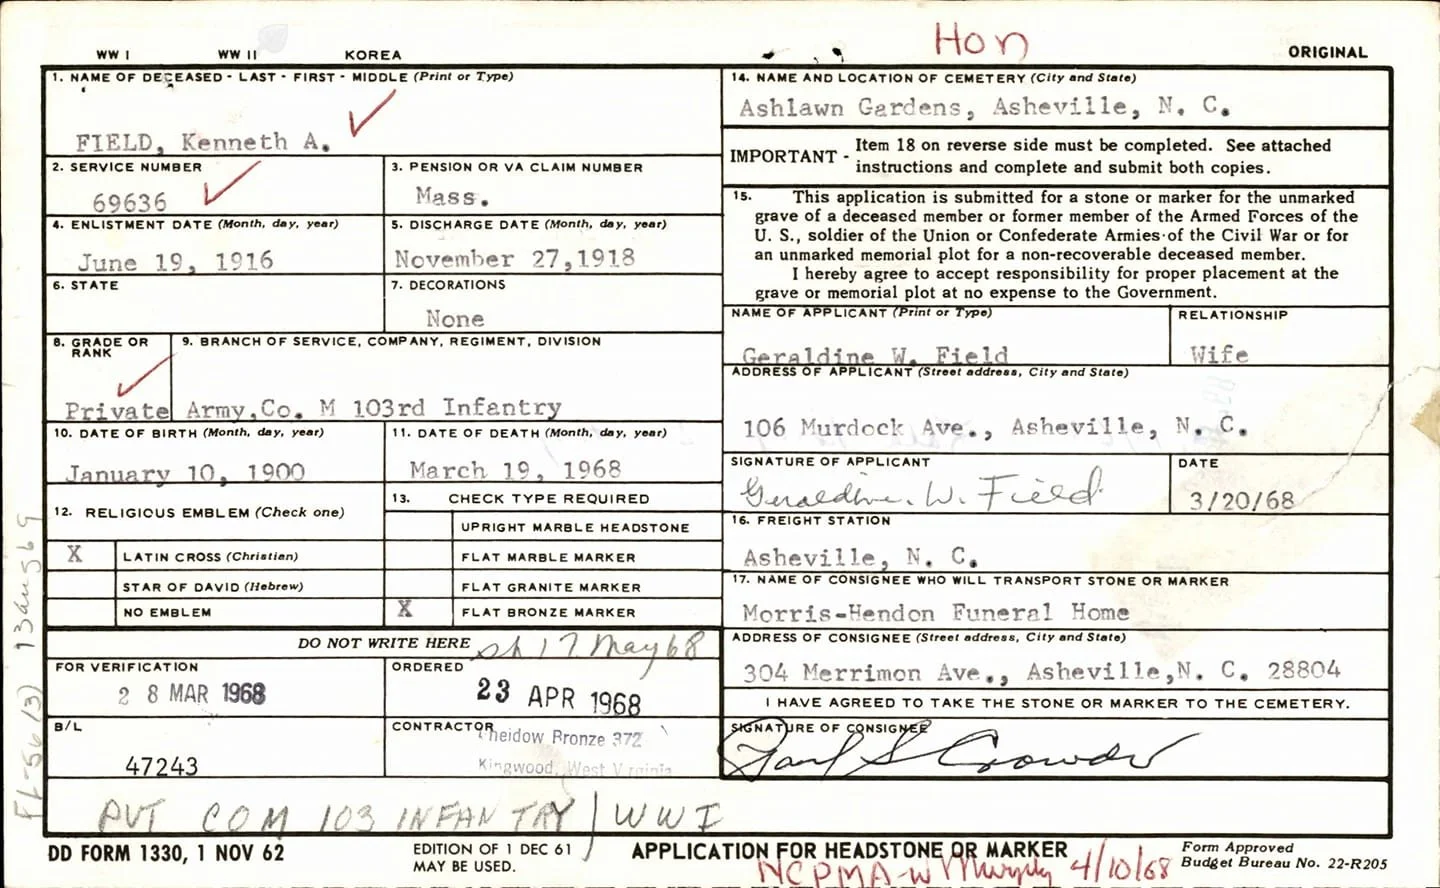 Hon
WW I WW II KOREA ORIGINAL
1. NAME OF DECEASED - LAST - FIRST - MIDDLE (Print or Type)
FIELD, Kenneth A.
2. SERVICE NUMBER
69636
3. PENSION OR VA CLAIM NUMBER
Mass.
4. ENLISTMENT DATE (Month, day, year)
June 19, 1916
5. DISCHARGE DATE (Month, day, year)
November 27,1918
6. STATE
7. DECORATIONS
None
8. GRADE OR RANK
Private
9. BRANCH OF SERVICE, COMPANY, REGIMENT, DIVISION
Army,Co. M 103rd Infantry
10. DATE OF BIRTH (Month, day, year)
January 10, 1900
11. DATE OF DEATH (Month, day, year)
March 19, 1968
12. RELIGIOUS EMBLEM (Check one)
X LATIN CROSS (Christian)
STAR OF DAVID (Hebrew)
NO EMBLEM
13. CHECK TYPE REQUIRED
UPRIGHT MARBLE HEADSTONE
FLAT MARBLE MARKER
FLAT GRANITE MARKER
X FLAT BRONZE MARKER
DO NOT WRITE HERE
17 May 68
FOR VERIFICATION
28 MAR 1968
ORDERED
23 APR 1968
B/L
47243
CONTRACTOR
Bronze 372
Kingwood, West Virginia
PVT CO M 103 INFANTRY / WWI
14. NAME AND LOCATION OF CEMETERY (City and State)
Ashlawn Gardens, Asheville, N. C.
IMPORTANT - Item 18 on reverse side must be completed. See attached
instructions and complete and submit both copies.
15. This application is submitted for a stone or marker for the unmarked
grave of a deceased member or former member of the Armed Forces of the
U. S., soldier of the Union or Confederate Armies of the Civil War or for
an unmarked memorial plot for a non-recoverable deceased member.
I hereby agree to accept responsibility for proper placement at the
grave or memorial plot at no expense to the Government.
NAME OF APPLICANT (Print or Type)
Geraldine W. Field
RELATIONSHIP
Wife
ADDRESS OF APPLICANT (Street address, City and State)
106 Murdock Ave., Asheville, N. C.
SIGNATURE OF APPLICANT
Geraldine W. Field
DATE
3/20/68
16. FREIGHT STATION
Asheville, N. C.
17. NAME OF CONSIGNEE WHO WILL TRANSPORT STONE OR MARKER
Morris-Hendon Funeral Home
ADDRESS OF CONSIGNEE (Street address, City and State)
304 Merrimon Ave., Asheville,N. C. 28804
I HAVE AGREED TO TAKE THE STONE OR MARKER TO THE CEMETERY.
SIGNATURE OF CONSIGNEE
DD FORM 1330, 1 NOV 62
EDITION OF 1 DEC 61
MAY BE USED.
APPLICATION FOR HEADSTONE OR MARKER
Form Approved
Budget Bureau No. 22-R205
NCPMA-W Murphy 4/10/68
13 Aug 69